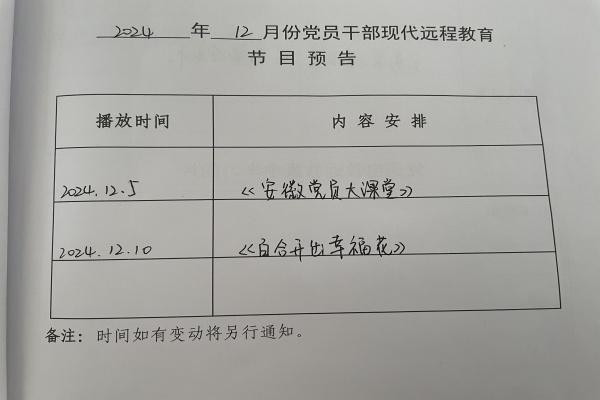 2024 年 12 月份党员干部现代远程教育
节目预告
播放时间 内容安排
2024.12.5 《安徽党员大课堂》
2024.12.10 《百合开出幸福花》
备注：时间如有变动将另行通知。